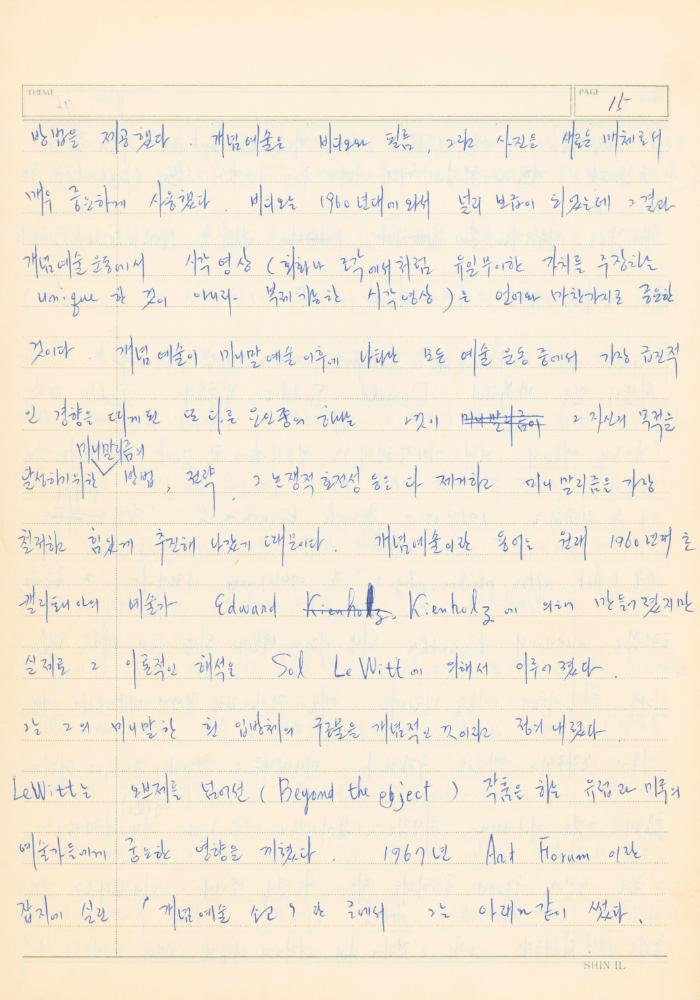 THEME
PAGE 15
방법을 제공했다. 개념예술은 비디오와 필름, 그리고 사진을 새로운 매체로서
매우 중요하게 사용했다. 비디오는 1960년대에 와서 널리 보급이 되었는데 그 결과
개념예술운동에서 시각영상(회화나 조각에서처럼 유일무이한 가치를 주장하는
unique 한 것이 아니라 복제가능한 시각영상)은 언어와 마찬가지로 중요한
것이다. 개념예술이 미니말예술 이후에 나타난 모든 예술운동 중에서 가장 급진적
인 경향을 띠게 된 또 다른 요인중의 하나는 그것이 미니말리즘이 그 자신의 목적을
미니말리즘의
달성하기위한 방법, 전략, 그 논쟁적 호전성 등을 다 제거하고 미니말리즘을 가장
철저하고 힘있게 추진해 나갔기 때문이다. 개념예술이란 용어는 원래 1960년께 초
캘리포니아의 예술가 Edward Kienholz Kienholz에 의해 만들어졌지만
실제로 그 이론적인 해석은 Sol LeWitt에 의해서 이루어졌다.
그는 그의 미니말한 흰 입방체의 구조물을 개념적인 것이라고 정의 내렸다.
LeWitt는 오브제를 넘어선 (Beyond the object) 작품을 하는 유럽과 미국의
예술가들에게 중요한 영향을 끼쳤다. 1967년 Art Forum 이란
잡지에 실린 「개념예술 소고」란 글에서 그는 아래와 같이 썼다.
SHIN IL